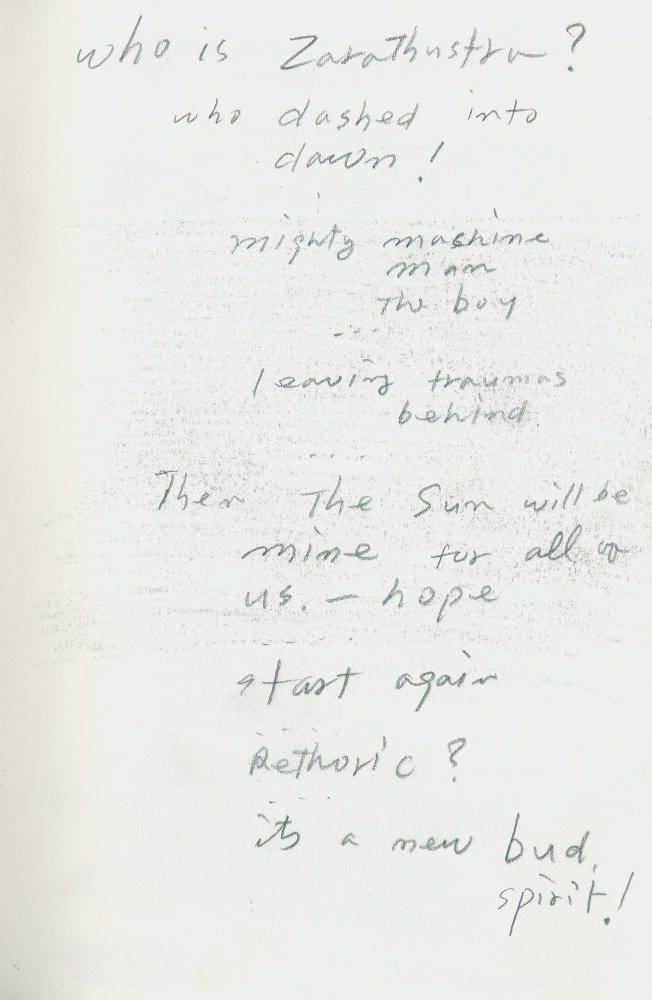 who is Zarathustra?
who dashed into
dawn!
mighty mashine
man
the boy
...
leaving traumas
behind
....
Then The Sun will be
mine for all of
us. — hope
start again
Rethoric?
its a new bud,
spirit!